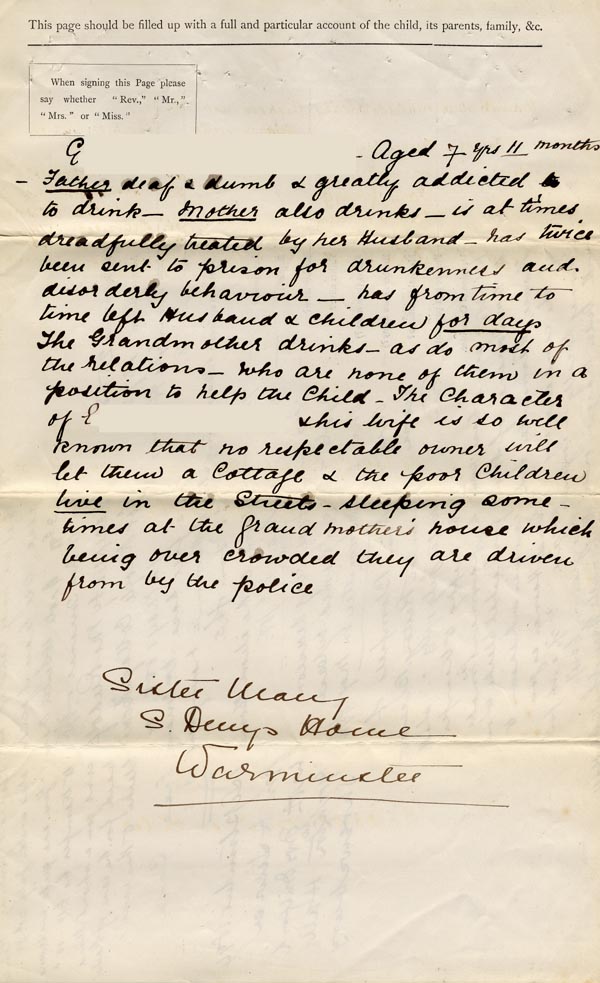 This page should be filled up with a full and particular account of the child, its parents, family, &c.
When signing this Page please
say whether "Rev.," "Mr.,"
"Mrs." or "Miss."
G - Aged 7 yrs 11 months
- Father deaf & dumb & greatly addicted to
to drink - Mother also drinks - is at times
dreadfully treated by her Husband - has twice
been sent to prison for drunkenness and
disorderly behaviour - has from time to
time left Husband & children for days
The Grandmother drinks - as do most of
the relations - who are none of them in a
position to help the Child - The Character
of E & his wife is so well
known that no respectable owner will
let them a Cottage & the poor Children
live in the Streets - sleeping some-
times at the grandmother's house which
being over crowded they are driven
from by the police
Sister Mary
S. Denys Home
Warminster